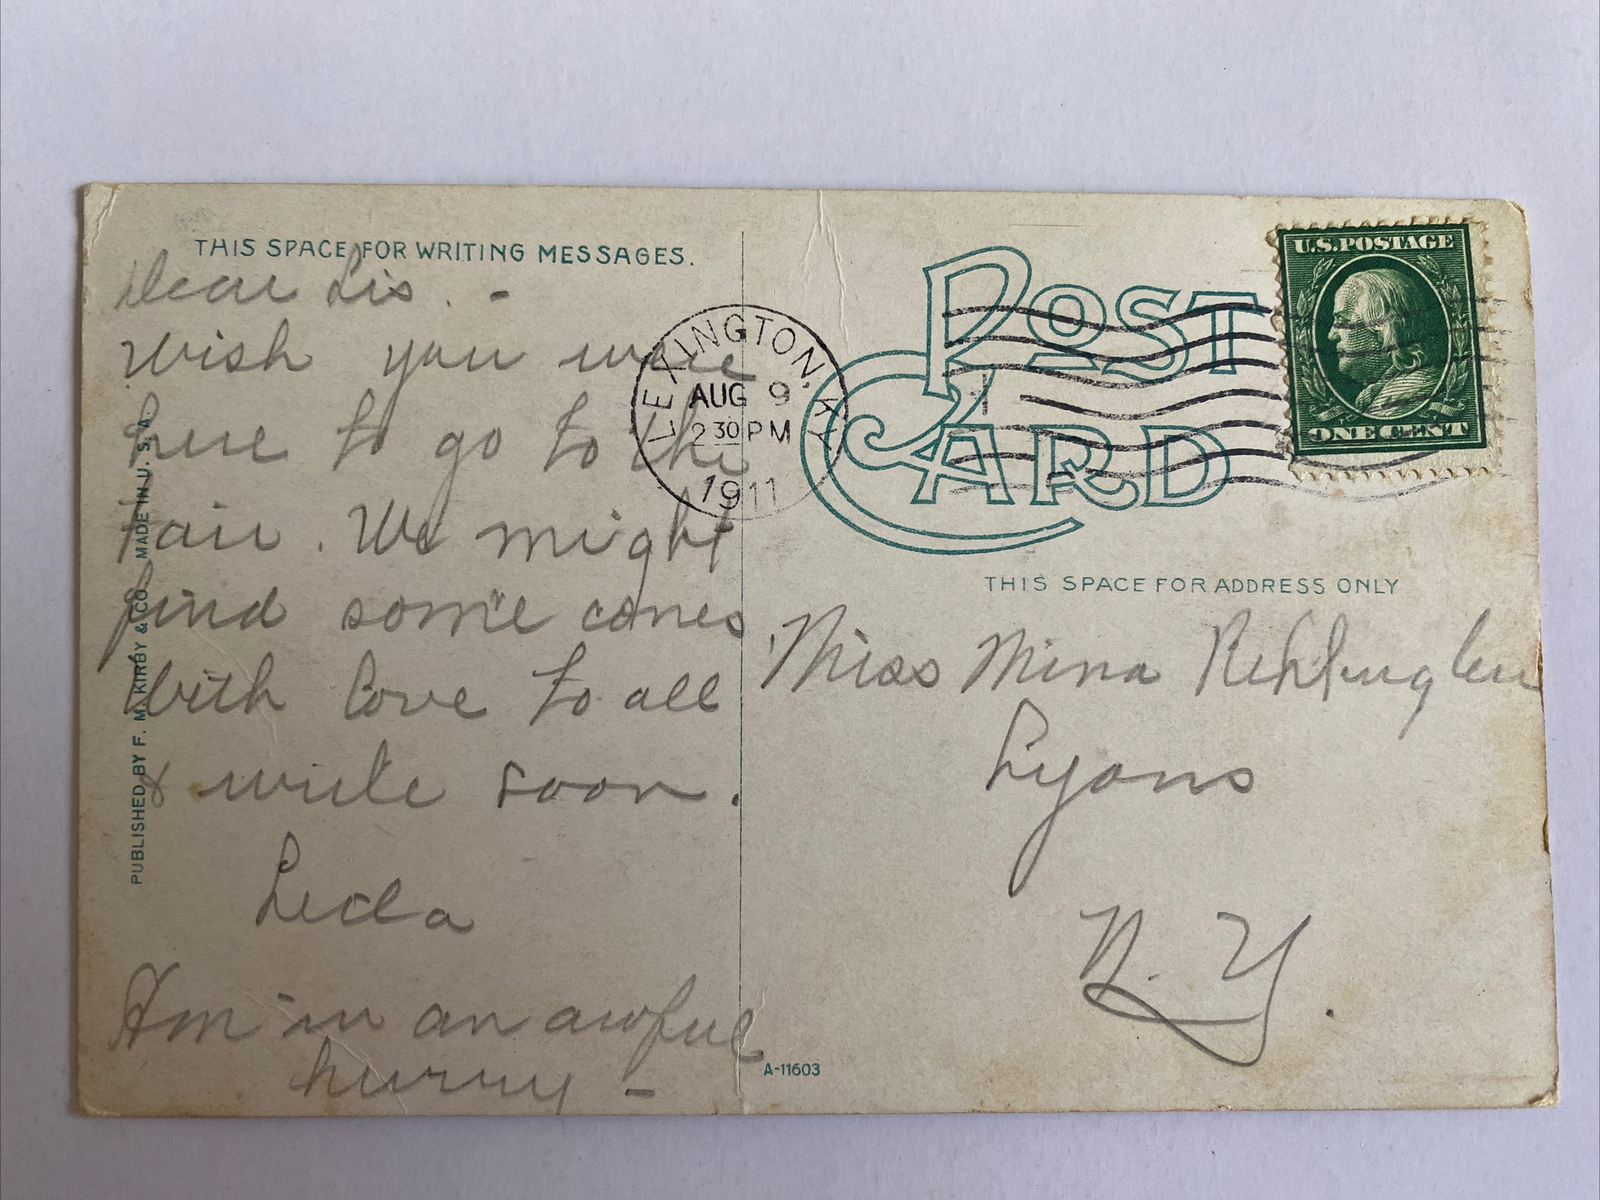 THIS SPACE FOR WRITING MESSAGES.
Dear Sis. -
Wish you were
here to go to the
Fair. We might
find some canes
With love to all
& write soon.
Leda
Am in an awful
hurry -
PUBLISHED BY F. M. KIRBY & CO. MADE IN U. S. A.
LEXINGTON, KY
AUG 9
2 30 PM
1911
POST
CARD
U.S. POSTAGE
ONE CENT
THIS SPACE FOR ADDRESS ONLY
Miss Mina
Lyons
N. Y.
A-11603